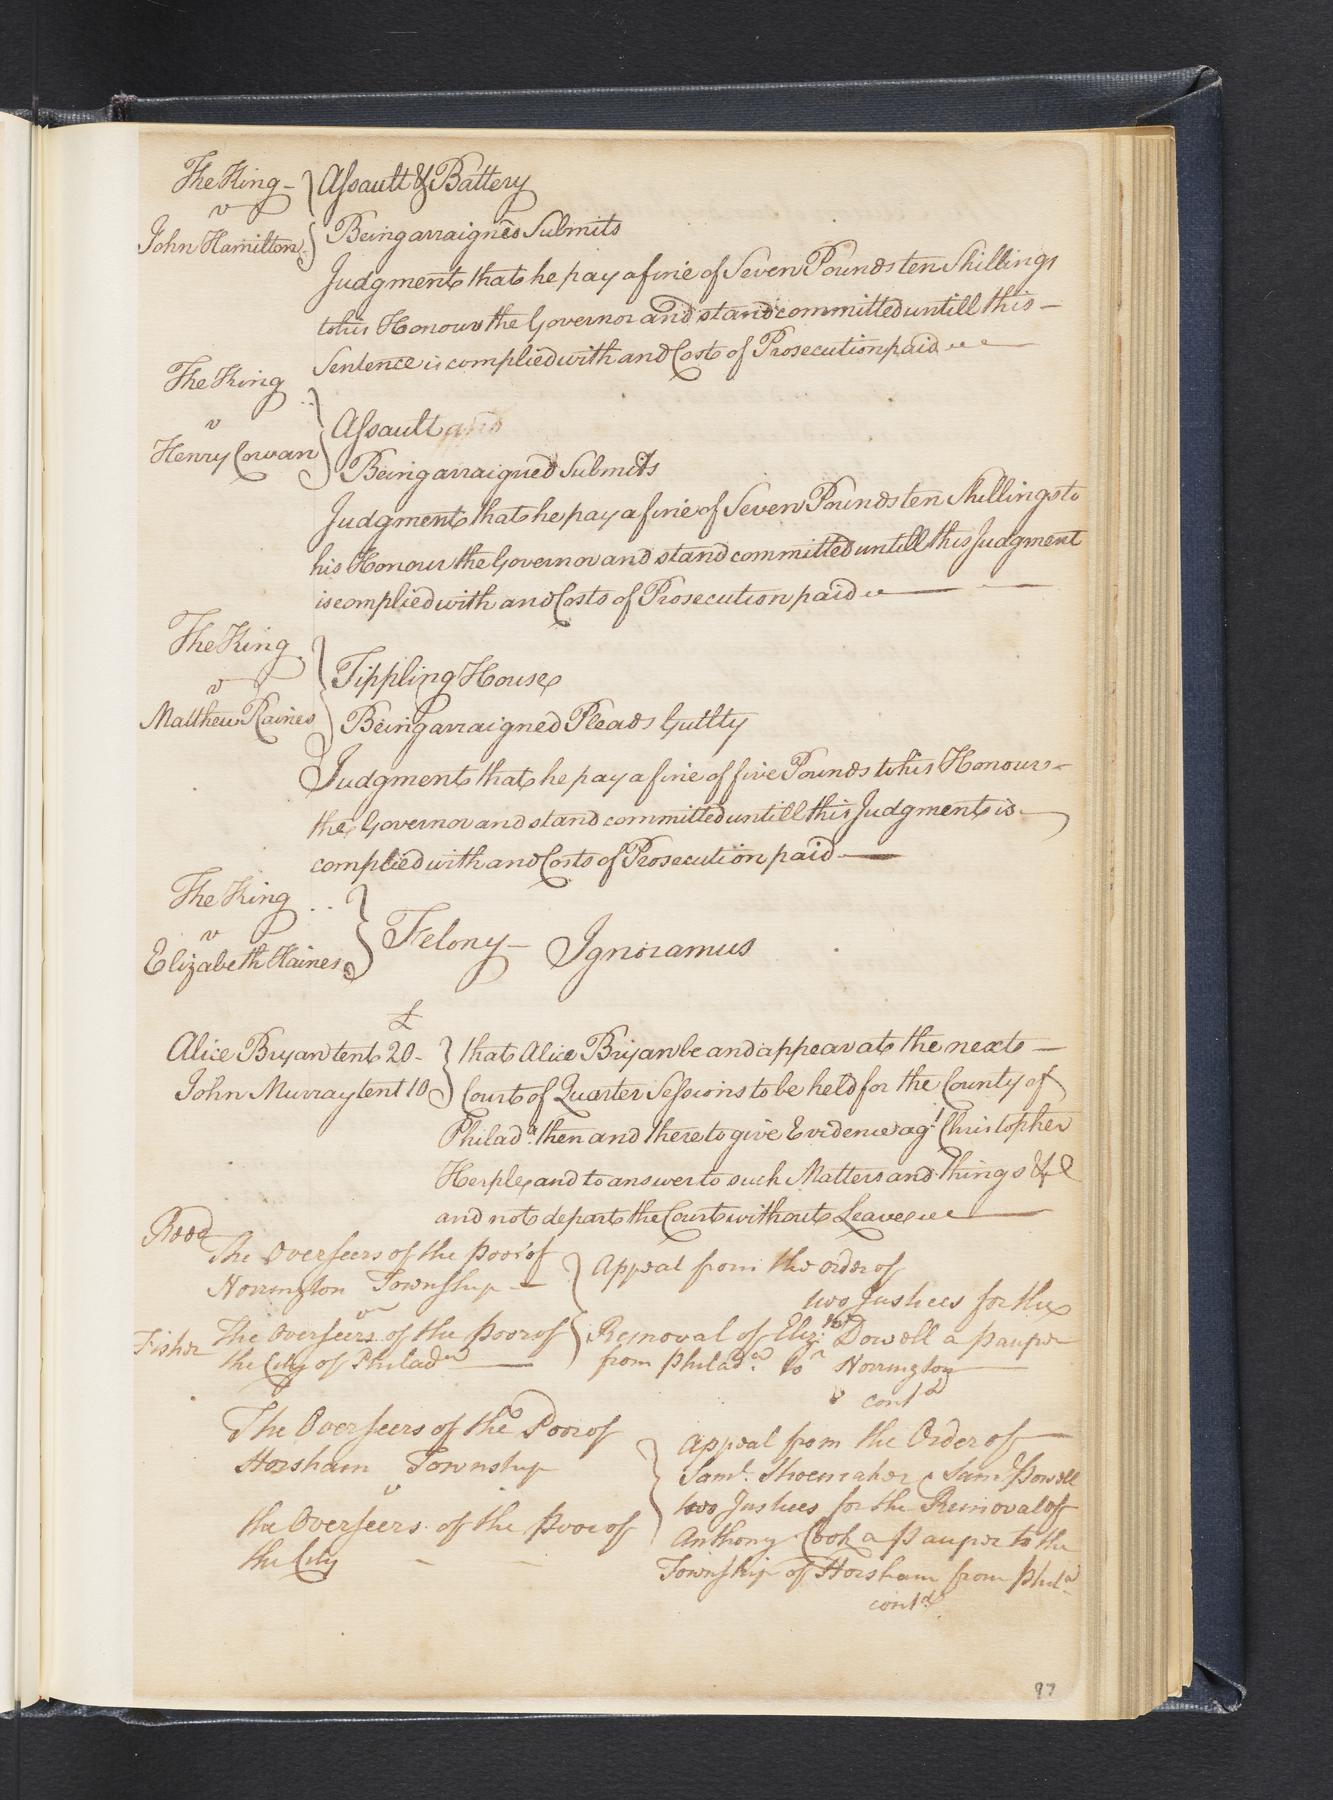 The King
v
John Hamilton
Assault & Battery
Being arraigned Submits
Judgment that he pay a fine of Seven Pounds ten Shillings
to his Honour the Governor and stand committed untill this
Sentence is complied with and Costs of Prosecution paid
The King
v
Henry Cowan
Assault and
Being arraigned Submits
Judgment that he pay a fine of Seven Pounds ten Shillings to
his Honour the Governor and stand committed untill this Judgment
is complied with and Costs of Prosecution paid
The King
v
Matthew Raines
Tippling House
Being arraigned Pleads Guilty
Judgment that he pay a fine of five Pounds to his Honour
the Governor and stand committed untill this Judgment is
complied with and Costs of Prosecution paid
The King
v
Elizabeth Haines
Felony — Ignoramus
£
Alice Bryan tent 20
John Murray tent 10
that Alice Bryan be and appear at the next
Court of Quarter Sessions to be held for the County of
Philad.a then and there to give Evidence ag.t Christopher
Herple and to answer to such Matters and things &c
and not depart the Court without Leave
Rood
The Overseers of the poor of
Norrington Township
v
Fisher The Overseers of the poor of
the City of Philad.a
Appeal from the order of
two Justices for the
Removal of Eliz.th Dowell a pauper
from Philad.a to Norrington
cont.d
The Overseers of the Poor of
Horsham Township
v
the Overseers of the poor of
the City
Appeal from the Order of
Sam.l Shoemaker & Sam Powell
two Justices for the Removal of
Anthony Cook a pauper to the
Township of Horsham from Phil.a
cont.d
97